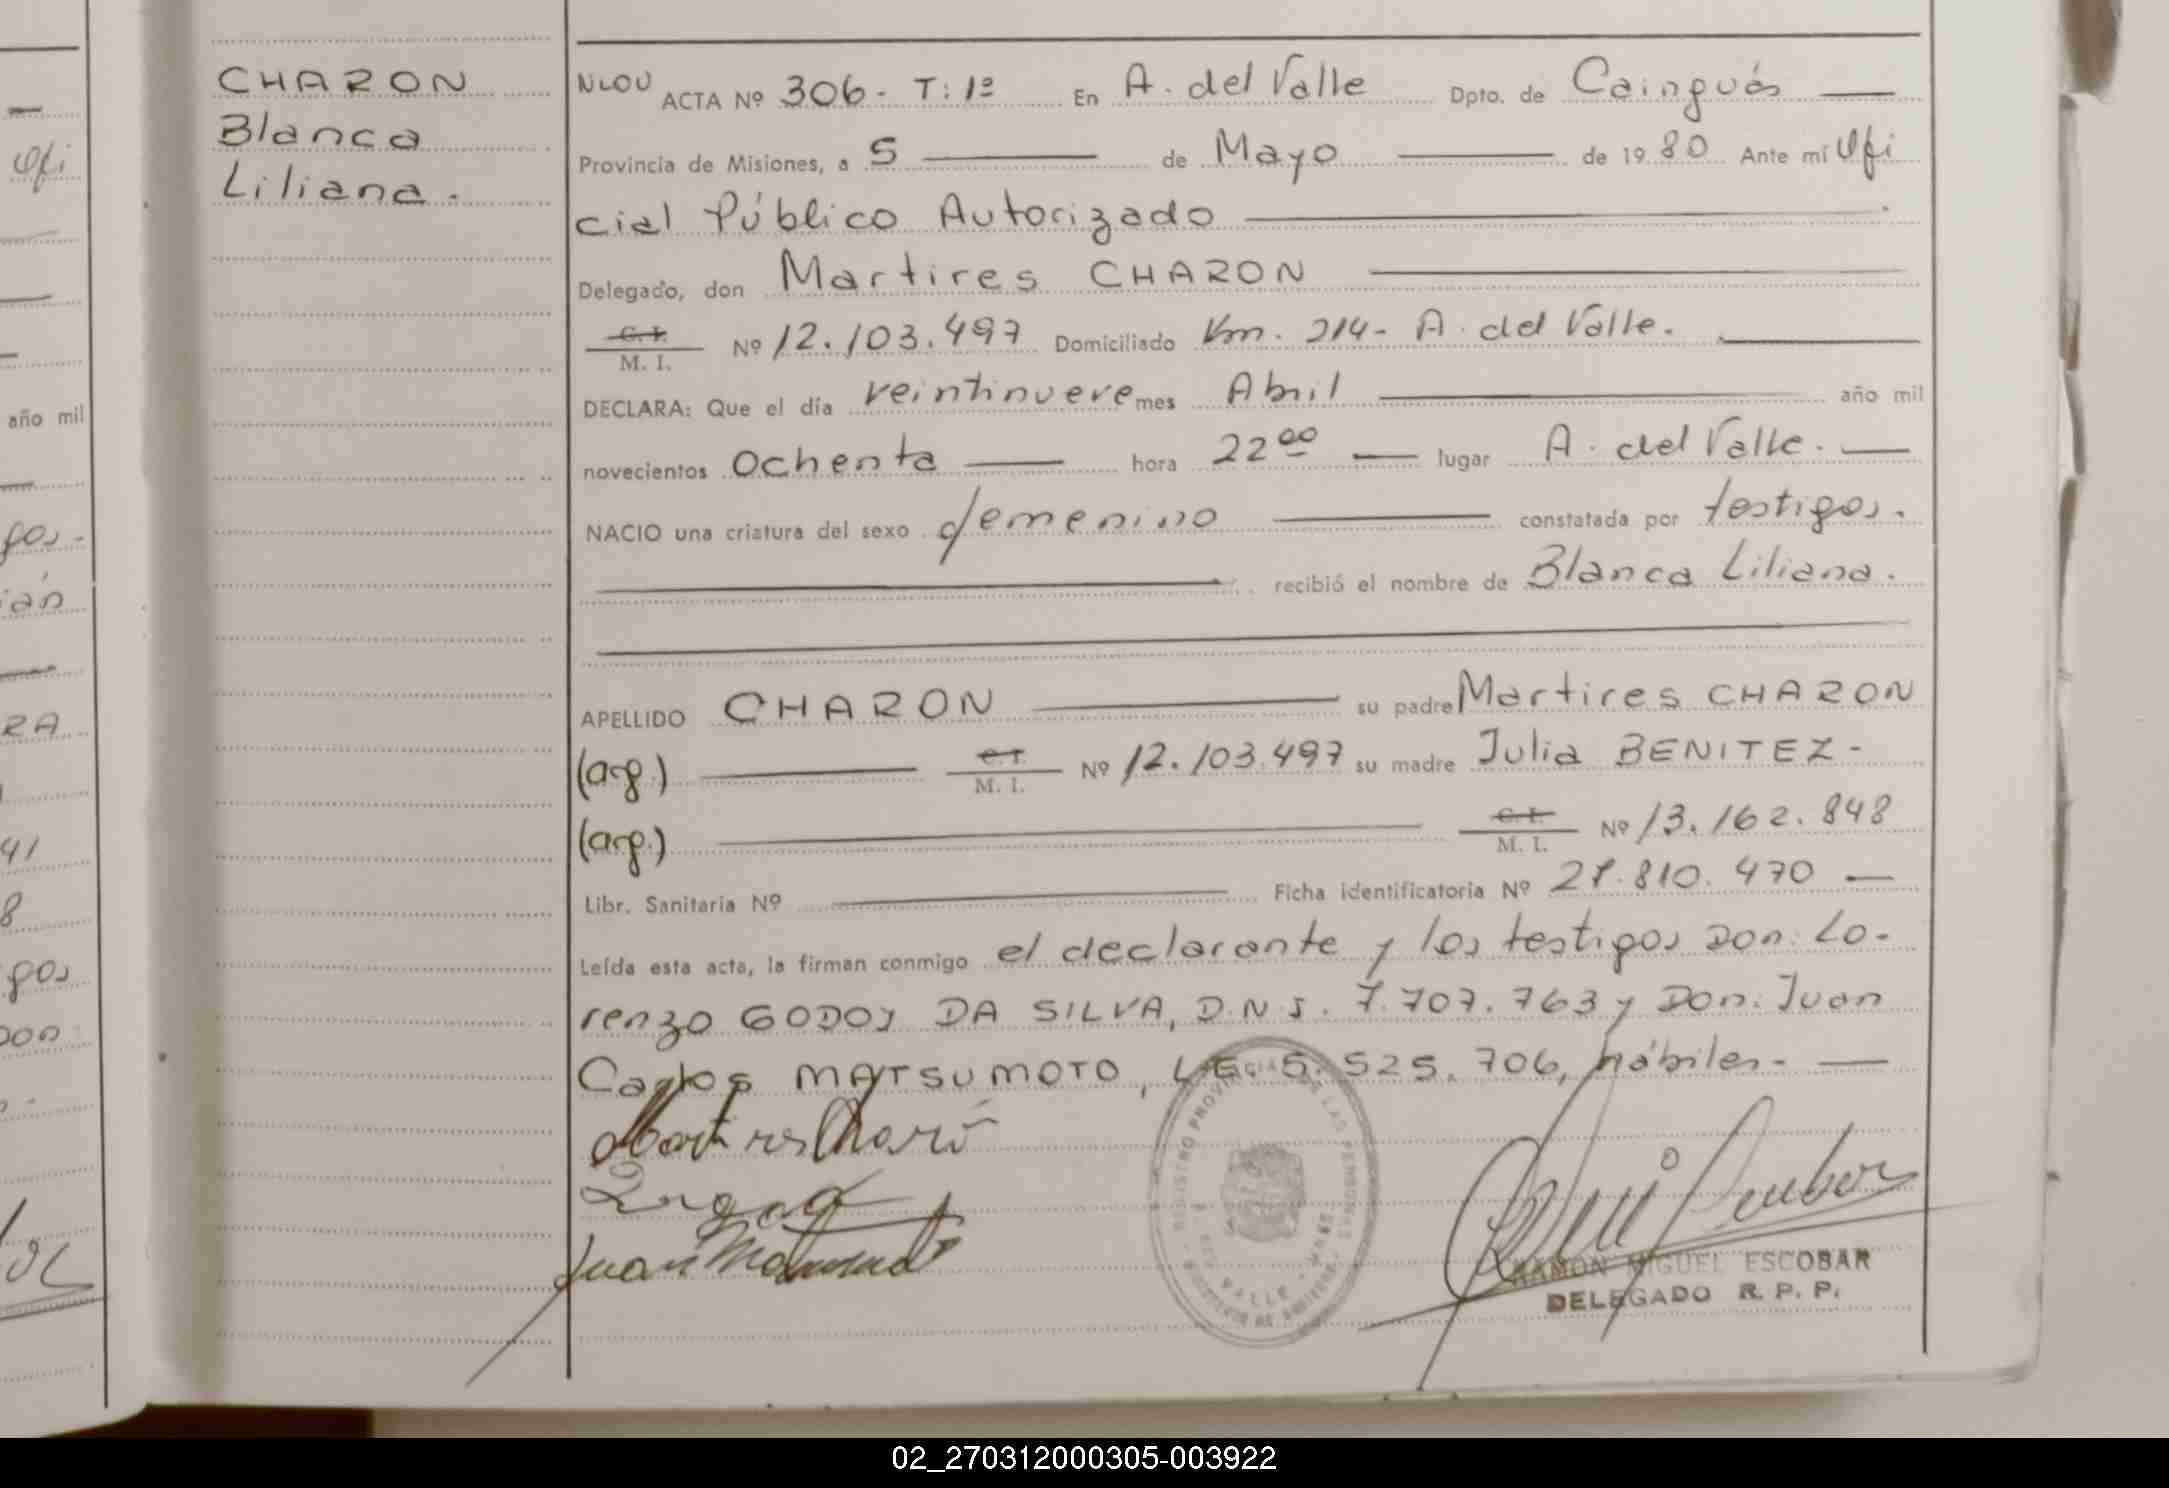 CHARON
Blanca
Liliana.
NLOU ACTA Nº 306- T: 1º En A. del Valle Dpto. de Cainguás
Provincia de Misiones, a 5 de Mayo de 1980 Ante mí Ofi
cial Público Autorizado
Delegado, don Martires CHARON
C. I.
M. I. Nº 12.103.497 Domiciliado Km. 214- A. del Valle.
DECLARA: Que el día veintinueve mes Abril año mil
novecientos Ochenta hora 22 00 lugar A. del Valle.
NACIO una criatura del sexo femenino constatada por testigos.
recibió el nombre de Blanca Liliana.
APELLIDO CHARON su padre Martires CHARON
(arg.) C. I. M. I. Nº 12.103.497 su madre Julia BENITEZ-
(arg.) C. I. M. I. Nº 13.162.848
Libr. Sanitaria Nº Ficha identificatoria Nº 27.810.470
Leída esta acta, la firman conmigo el declarante y los testigos Don: Lo-
renzo GODOY DA SILVA, D.N.I. 7.707.763 y Don: Juan
Carlos MATSUMOTO, L.E. 5.525.706, hábiles-
RAMON MIGUEL ESCOBAR
DELEGADO R. P. P.
año mil
gos-
ián
RA
41
8
gos
Don:
Ofi
02_270312000305-003922